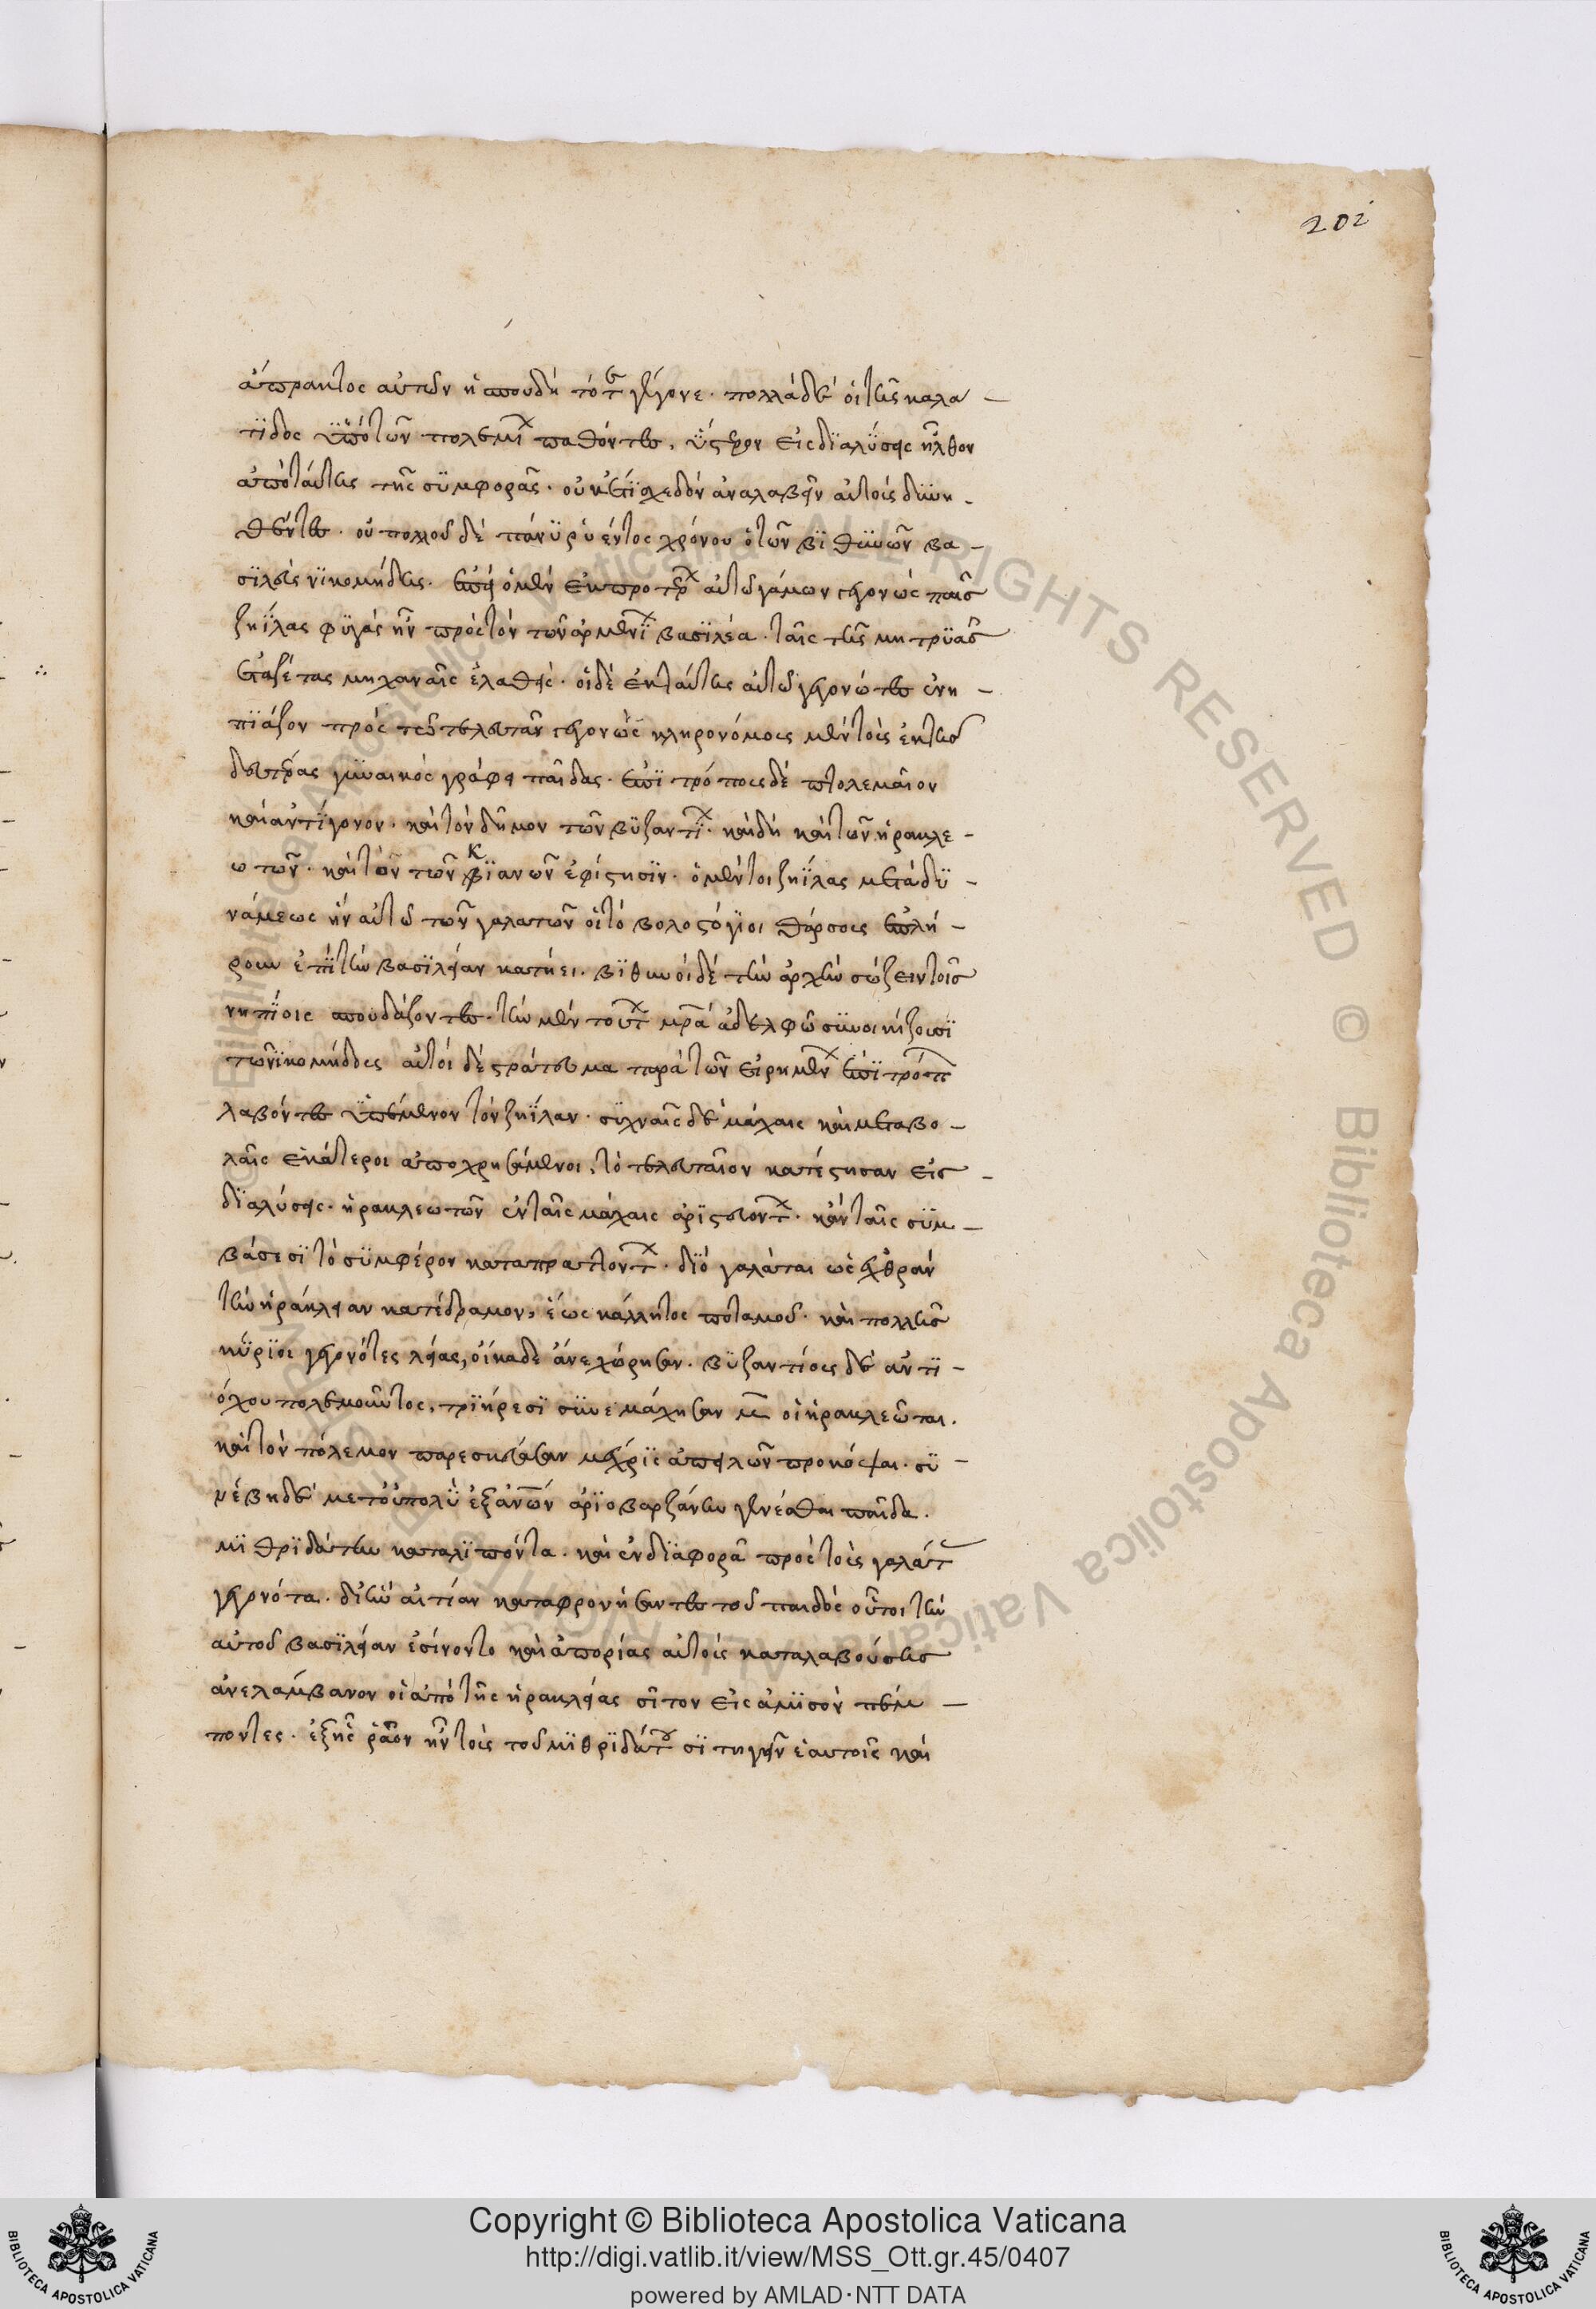 202
ἄπρακτος αὐτῶν ἡ σπουδὴ τότε γέγονε. πολλὰ δὲ οἱ τῆς καλα-
τϊδος ϋπὸ τῶν πολεμϊ παθόντες, ϋστερον εἰς δϊαλϋσεις ἦλθον
ἀπὸ ταύτης τῆς σϋμφορᾶς. οὐκέτϊ σχεδὸν ἀναλαβεῖν αὐτοὺς δϋνη-
θέντες. οὐ πολλοῦ δὲ πάνϋ ῥυέντος χρόνου ὁ τῶν βϊθϋνῶν βα-
σϊλεὺς νϊκομήδης. ἐπεὶ ὁ μὲν ἐκ προτερ αὐτῶ γάμων γεγονὼς παῖς
ζηΐλας φϋγὰς ἦν πρὸς τὸν τῶν ἀρμενϊ βασϊλέα. ταῖς τῆς μητρϋᾶς
ἐταζέτας μηχαναῖς ἐλαθεὶς. οἱ δὲ ἐκ ταύτης αὐτῶ γεγονότες ἐνη-
πϊάζον πρὸς τῶ τελευτᾶν γεγονὼς κληρονόμους μὲν τοὺς ἐκ τῆς
δευτέρας γϋναικὸς γράφει παῖδας. ἐπϊτρόπους δὲ πτολεμαῖον
καὶ ἀντΐγονον. καὶ τὸν δῆμον τῶν βϋζαντϊ. καὶ δὴ καὶ τῶν ἡρακλε-
ωτῶν. καὶ τὸν τῶν κϊανῶν ἐφίστησϊν. ὁ μέντοι ζηΐλας μετὰ δϋ-
νάμεως ἣν αὐτῶ τῶν γαλατῶν οἱ τὸ βολοστόγϊοι θάρσους ἐπλή-
ρουν ἐπὶ τὴν βασϊλείαν κατήει. βϊθυνοὶ δὲ τὴν ἀρχὴν σώζειν τοῖς
νηπΐοις σπουδάζοντες. τὴν μὲν τουτ μρα ἀδελφῶ σϋνοικήζουσϊ
τῶ νϊκομήδους αὐτοὶ δὲ στράτευμα παρὰ τῶν εἰρημεν ἐπϊτρόπ
λαβόντες ϋπέμενον τὸν ζηΐλαν. σϋχναῖς δὲ μάχαις καὶ μεταβο-
λαῖς ἑκάτεροι ἀποχρησάμενοι, τὸ τελευταῖον κατέστησαν εἰς
δϊαλύσεις. ἡρακλεωτῶν ἐν ταῖς μάχαις ἀρϊστευοντ. κἀν ταῖς σϋμ-
βάσεσϊ τὸ σϋμφέρον καταπραττοντ. δϊὸ γαλάται ὡς ἐχθρὰν
τὴν ἡράκλειαν κατέδραμον, ἕως κάλλητος πόταμοῦ. καὶ πολλῆς
κϋρϊοι γεγονότες λείας, οἴκαδε ἀνεχώρησαν. βϋζαντίοις δὲ ἀντϊ-
όχου πολεμοῦντος, τρϊήρεσϊ σϋνεμάχησαν οἱ ἡρακλεῶται.
καὶ τὸν πόλεμον παρεσκεύασαν μέχρϊς ἀπειλῶν προκόψαι. σϋ-
νέβη δὲ μετ' οὐπολϋ ἐξ ἀνων ἀρϊοβαρζάνην γενέσθαι παῖδα.
μϊθρϊδάτην καταλϊπόντα. καὶ ἐν δϊαφορᾶ πρὸς τοὺς γαλάτ
γεγονότα. δι' ἣν αἰτίαν καταφρονήσαντες τοῦ παιδὸς οὗτοι τὴν
αὐτοῦ βασϊλείαν ἐσίνοντο καὶ ἀπορίας αὐτοὺς καταλαβούσης
ἀνελάμβανον οἱ ἀπὸ τῆς ἡρακλείας σῖτον εἰς ἀμϊσὸν πέμ-
ποντες. ἐξῆς ῥᾶον ἦν τοὺς τοῦ μϊθρϊδάτου σϊτηγεῖν ἑαυτοῖς καὶ
Copyright © Biblioteca Apostolica Vaticana
http://digi.vatlib.it/view/MSS_Ott.gr.45/0407
powered by AMLAD·NTT DATA